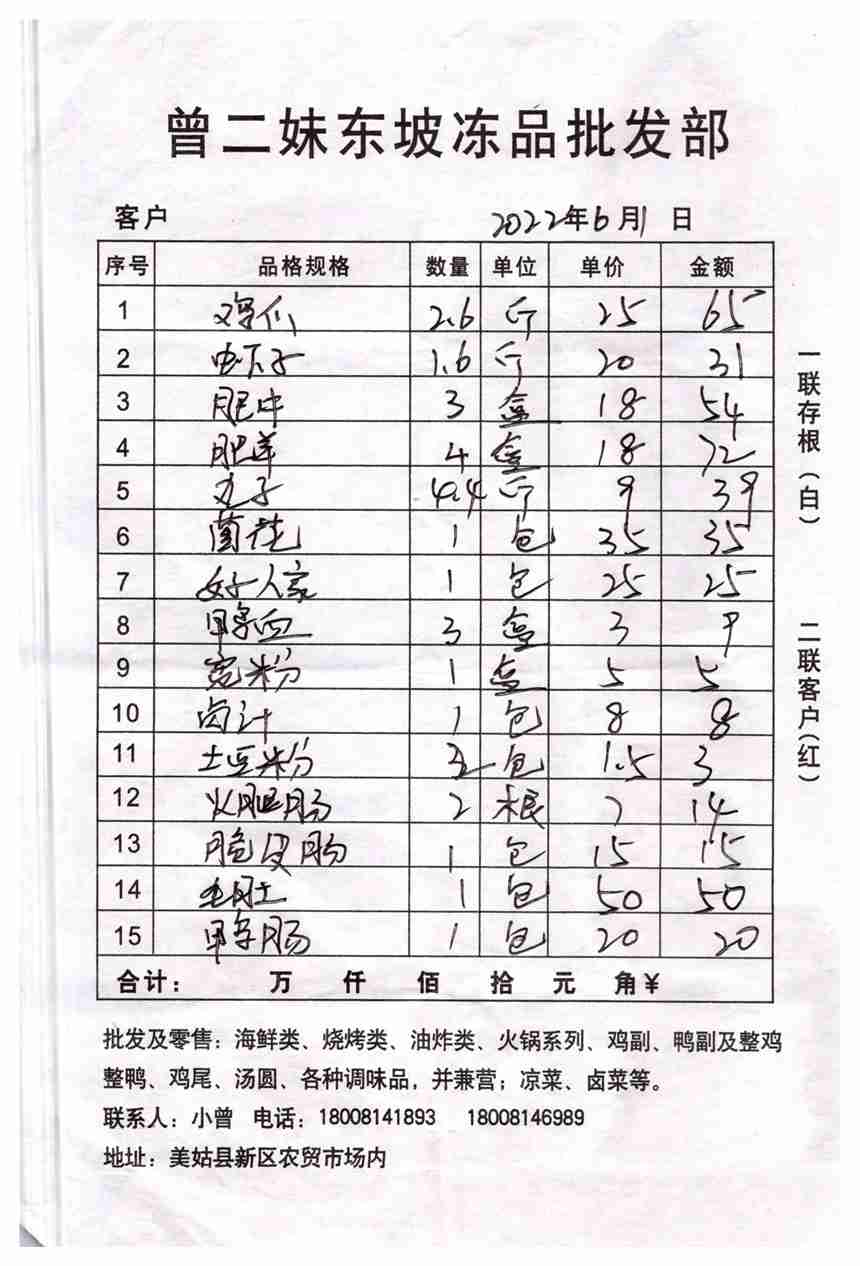 曾二妹东坡冻品批发部
客户 2022年6月1日
序号 品格规格 数量 单位 单价 金额
1 鸡爪 2.6 斤 25 65
2 虾子 1.6 斤 20 31
3 肥牛 3 盒 18 54
4 肥羊 4 盒 18 72
5 丸子 4.4 斤 9 39
6 菌花 1 包 35 35
7 好人家 1 包 25 25
8 血 3 盒 3 9
9 宽粉 1 盒 5 5
10 卤汁 1 包 8 8
11 土豆粉 2 包 1.5 3
12 火腿肠 2 根 7 14
13 脆皮肠 1 包 15 15
14 毛肚 1 包 50 50
15 肠 1 包 20 20
合计： 万 仟 佰 拾 元 角￥
批发及零售：海鲜类、烧烤类、油炸类、火锅系列、鸡副、鸭副及整鸡
整鸭、鸡尾、汤圆、各种调味品，并兼营；凉菜、卤菜等。
联系人：小曾 电话：18008141893 18008146989
地址：美姑县新区农贸市场内
一联存根（白）
二联客户（红）